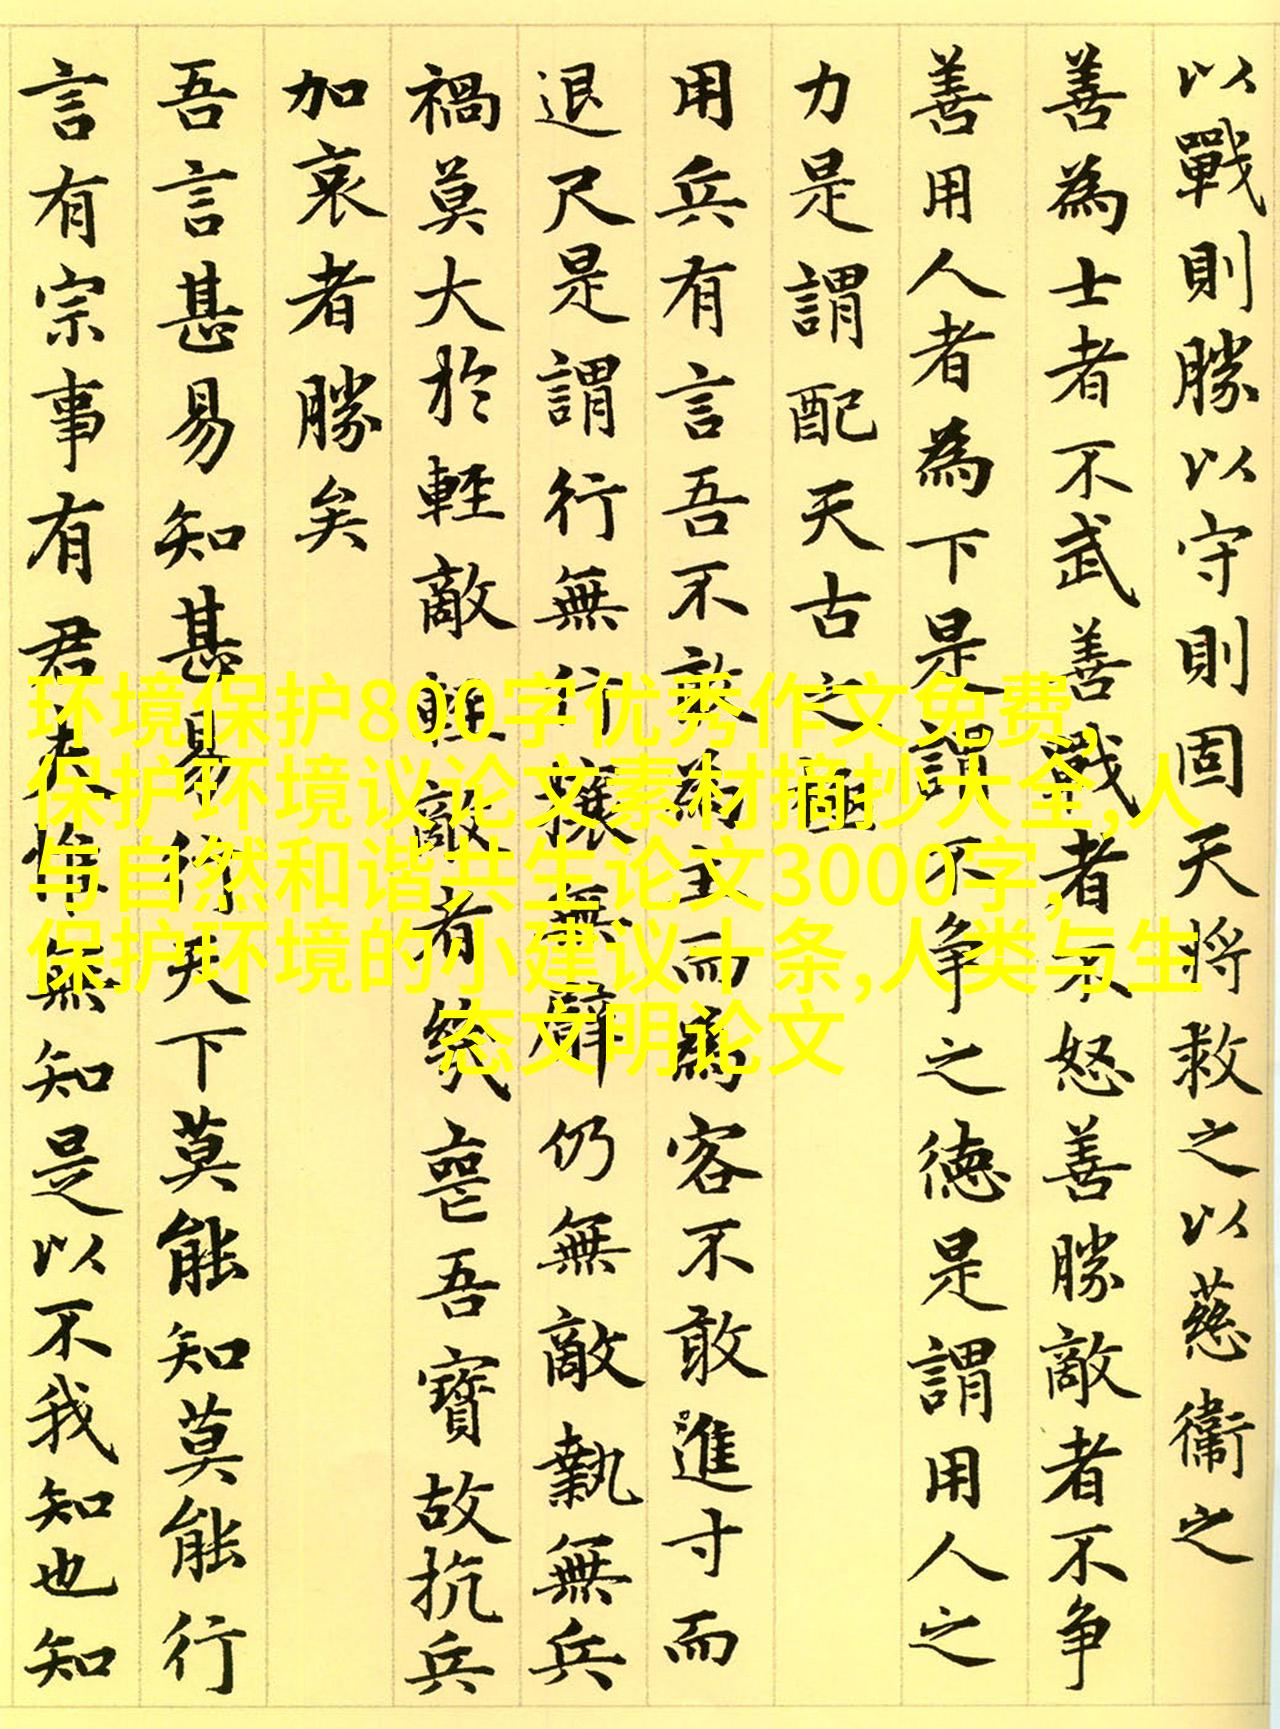 以戰則勝以守則固天將救之以慈衛之
善為士者不武善戰者不怒善勝敵者不争
善用人者為下是謂不争之德是謂用人之
力是謂配天古之極
用兵有言吾不敢為主而為客不敢進寸而
退尺是謂行無行攘無臂仍無敵執無兵
禍莫大於輕敵輕敵者幾喪吾寶故抗兵
加哀者勝矣
吾言甚易知甚易行天下莫能知莫能行
言有宗事有君夫惟無知是以不我知也知
环境保护800字优秀作文免费,
保护环境议论文素材摘抄大全,人
与自然和谐共生论文3000字,
保护环境的小建议十条,人类与生
态文明论文